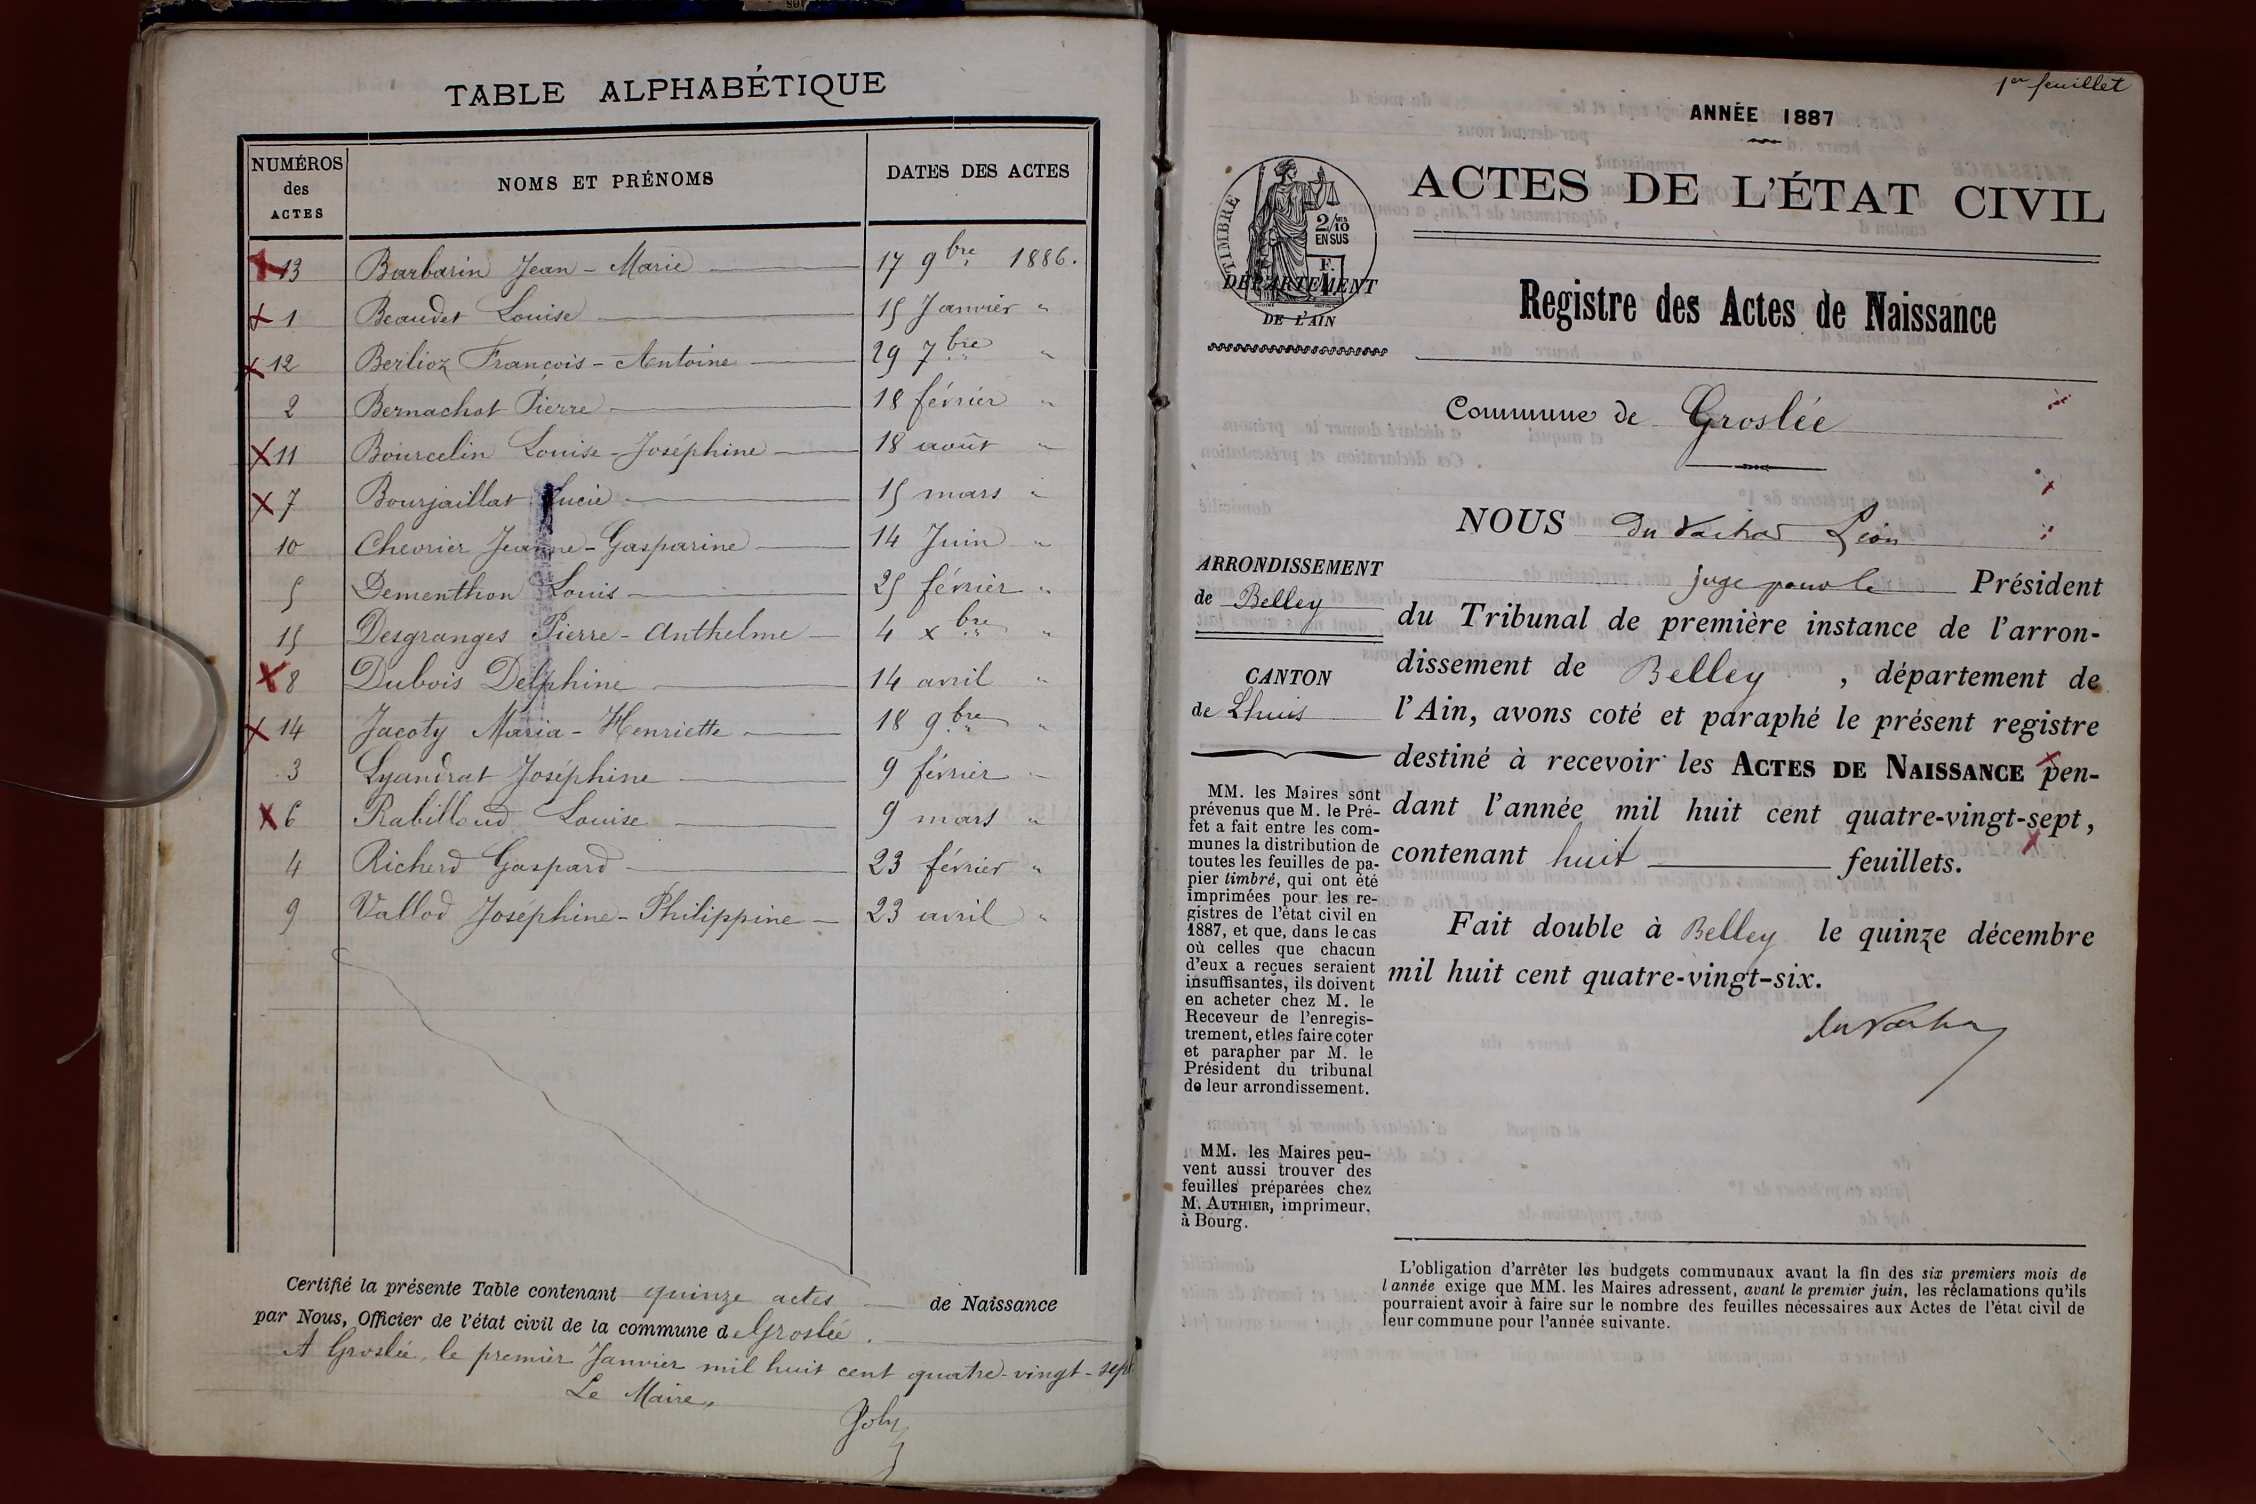 TABLE ALPHABÉTIQUE
NUMÉROS des ACTES NOMS ET PRÉNOMS DATES DES ACTES
13 Barbarin Jean - Marie 17 9bre 1886.
1 Beaudet Louise 15 Janvier "
12 Berlioz François - Antoine 29 7bre "
2 Bernachot Pierre 18 février "
11 Bourcelin Louise - Joséphine 18 août "
7 Bourjaillat Lucie 15 mars "
10 Chevrier Jeanne - Gasparine 14 Juin "
5 Dementhon Louis 25 février "
15 Desgranges Pierre - Anthelme 4 xbre "
8 Dubois Delphine 14 avril "
14 Jacoty Maria - Henriette 18 9bre "
3 Lyandrat Joséphine 9 février "
6 Rabilloud Louise 9 mars "
4 Richerd Gaspard 23 février "
9 Vallod Joséphine - Philippine 23 avril "
Certifié la présente Table contenant quinze actes de Naissance
par Nous, Officier de l'état civil de la commune de Groslée.
A Groslée, le premier Janvier mil huit cent quatre-vingt-sept
Le Maire,
Joly
1er feuillet
ANNÉE 1887
ACTES DE L'ÉTAT CIVIL
TIMBRE
2/10
EN SUS
DÉPARTEMENT
DE L'AIN
Registre des Actes de Naissance
Commune de Groslée
NOUS Léon
ARRONDISSEMENT
de Belley
CANTON
de Lhuis
MM. les Maires sont
prévenus que M. le Pré-
fet a fait entre les com-
munes la distribution de
toutes les feuilles de pa-
pier timbré, qui ont été
imprimées pour les re-
gistres de l'état civil en
1887, et que, dans le cas
où celles que chacun
d'eux a reçues seraient
insuffisantes, ils doivent
en acheter chez M. le
Receveur de l'enregis-
trement, et les faire coter
et parapher par M. le
Président du tribunal
de leur arrondissement.
MM. les Maires peu-
vent aussi trouver des
feuilles préparées chez
M. AUTHIER, imprimeur,
à Bourg.
juge pour le Président
du Tribunal de première instance de l'arron-
dissement de Belley , département de
l'Ain, avons coté et paraphé le présent registre
destiné à recevoir les ACTES DE NAISSANCE pen-
dant l'année mil huit cent quatre-vingt-sept,
contenant huit feuillets.
Fait double à Belley le quinze décembre
mil huit cent quatre-vingt-six.
L'obligation d'arrêter les budgets communaux avant la fin des six premiers mois de
l'année exige que MM. les Maires adressent, avant le premier juin, les réclamations qu'ils
pourraient avoir à faire sur le nombre des feuilles nécessaires aux Actes de l'état civil de
leur commune pour l'année suivante.